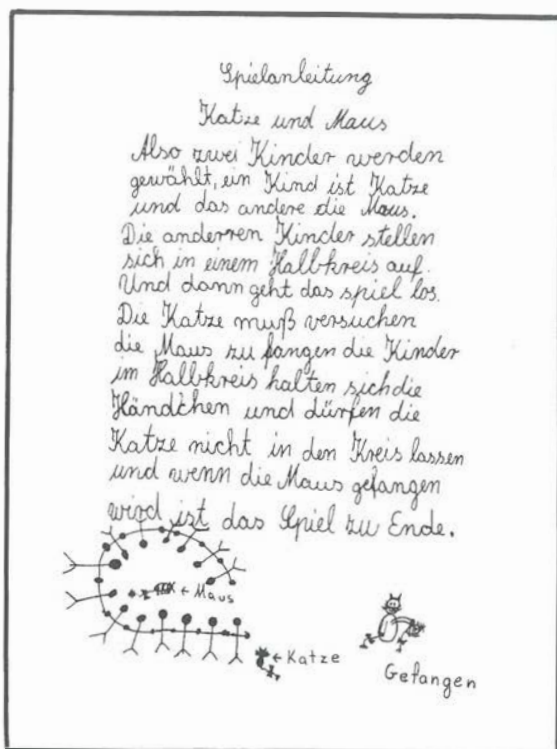 Spielanleitung
Katze und Maus
Also zwei Kinder werden
gewählt, ein Kind ist Katze
und das andere die Maus.
Die anderren Kinder stellen
sich in einem Halbkreis auf.
Und dann geht das spiel los.
Die Katze muß versuchen
die Maus zu fangen die Kinder
im Halbkreis halten sich die
Händchen und dürfen die
Katze nicht in den Kreis lassen
und wenn die Maus gefangen
wird ist das Spiel zu Ende.
← Maus
← Katze
Gefangen